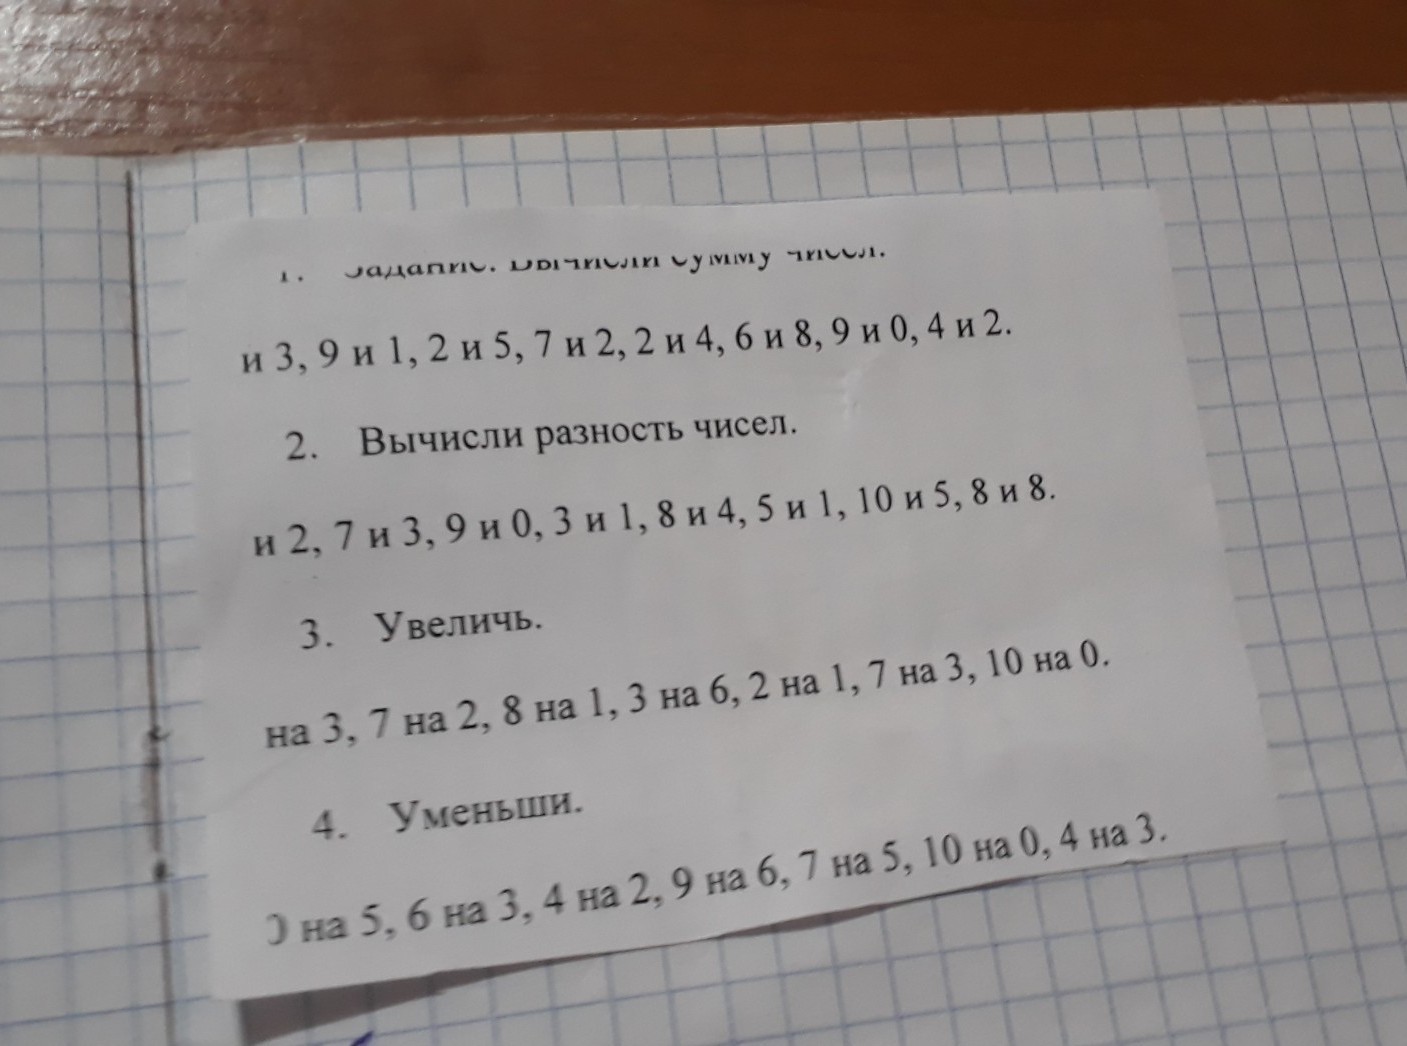 1. Задание. Вычисли сумму чисел.
и 3, 9 и 1, 2 и 5, 7 и 2, 2 и 4, 6 и 8, 9 и 0, 4 и 2.
2. Вычисли разность чисел.
и 2, 7 и 3, 9 и 0, 3 и 1, 8 и 4, 5 и 1, 10 и 5, 8 и 8.
3. Увеличь.
на 3, 7 на 2, 8 на 1, 3 на 6, 2 на 1, 7 на 3, 10 на 0.
4. Уменьши.
0 на 5, 6 на 3, 4 на 2, 9 на 6, 7 на 5, 10 на 0, 4 на 3.